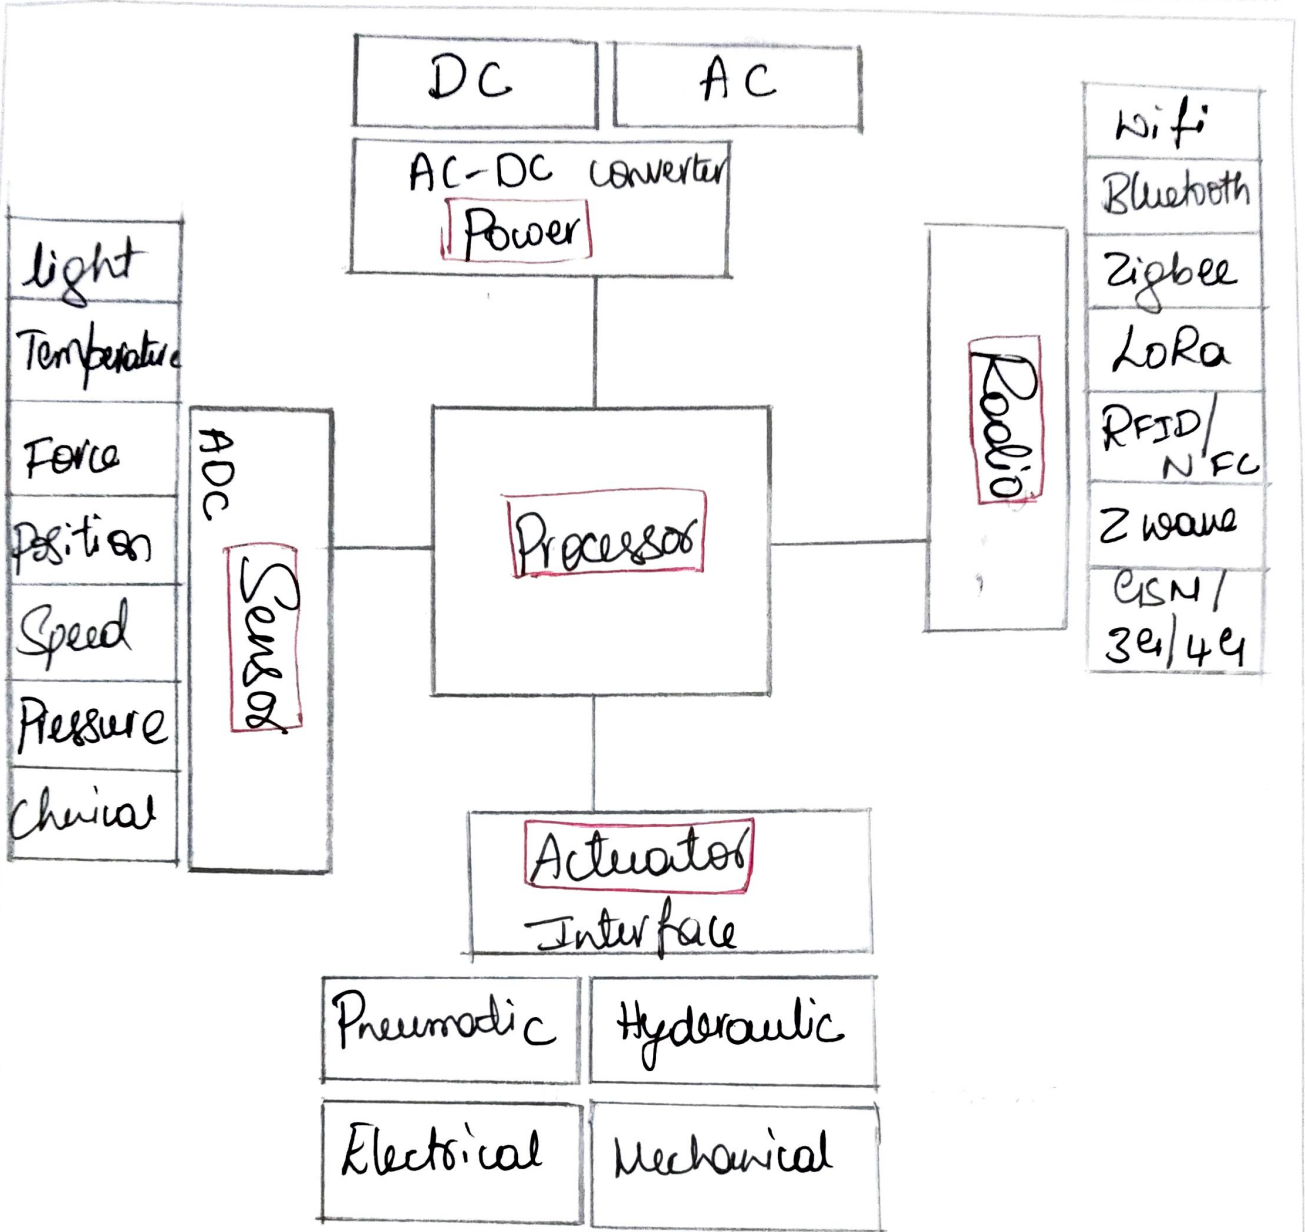 DC
AC
AC-DC converter
Power
light
Temperature
Force
Position
Speed
Pressure
Chemical
ADC
Sensor
Processor
Radio
Wifi
Bluetooth
Zigbee
LoRa
RFID/
NFC
Z wave
GSM/
3G/4G
Actuator
Interface
Pneumatic
Hyderaulic
Electrical
Mechanical